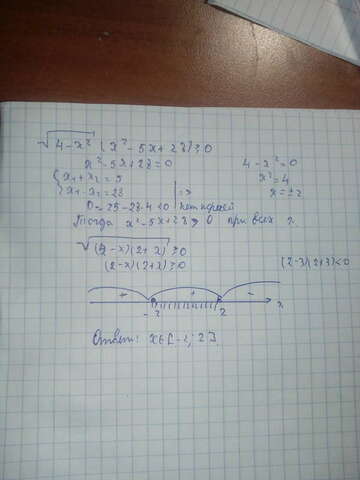 √(4-x²) (x² - 5x + 28) ≥ 0
x² - 5x + 28 = 0
4 - x² = 0
x² = 4
x = ±2
{ x₁ + x₂ = 5
x₁ · x₂ = 28 | =>
D = 25 - 28·4 < 0 | нет корней
Тогда x² - 5x + 28 > 0 при всех x.
√((2-x)(2+x)) ≥ 0
(2-x)(2+x) ≥ 0
(2-3)(2+3) < 0
+ + -
-2 2 x
Ответ: x ∈ [-2; 2].